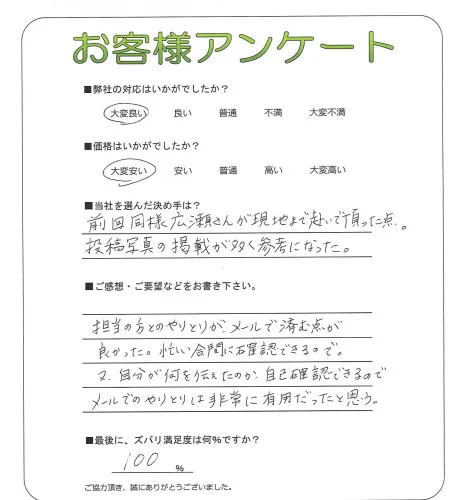 お客様アンケート
■弊社の対応はいかがでしたか?
大変良い 良い 普通 不満 大変不満
■価格はいかがでしたか?
大変安い 安い 普通 高い 大変高い
■当社を選んだ決め手は?
前回同様広瀬さんが現地まで赴いて頂った点。
投稿写真の掲載が多く参考になった。
■ご感想・ご要望などをお書き下さい。
担当の方とのやりとりが、メールで済む点が
良かった。忙しい合間に確認できるので。
又、自分が何を伝えたのか、自己確認できるので
メールでのやりとりは非常に有用だったと思う。
■最後に、ズバリ満足度は何%ですか?
100 %
ご協力頂き、誠にありがとうございました。